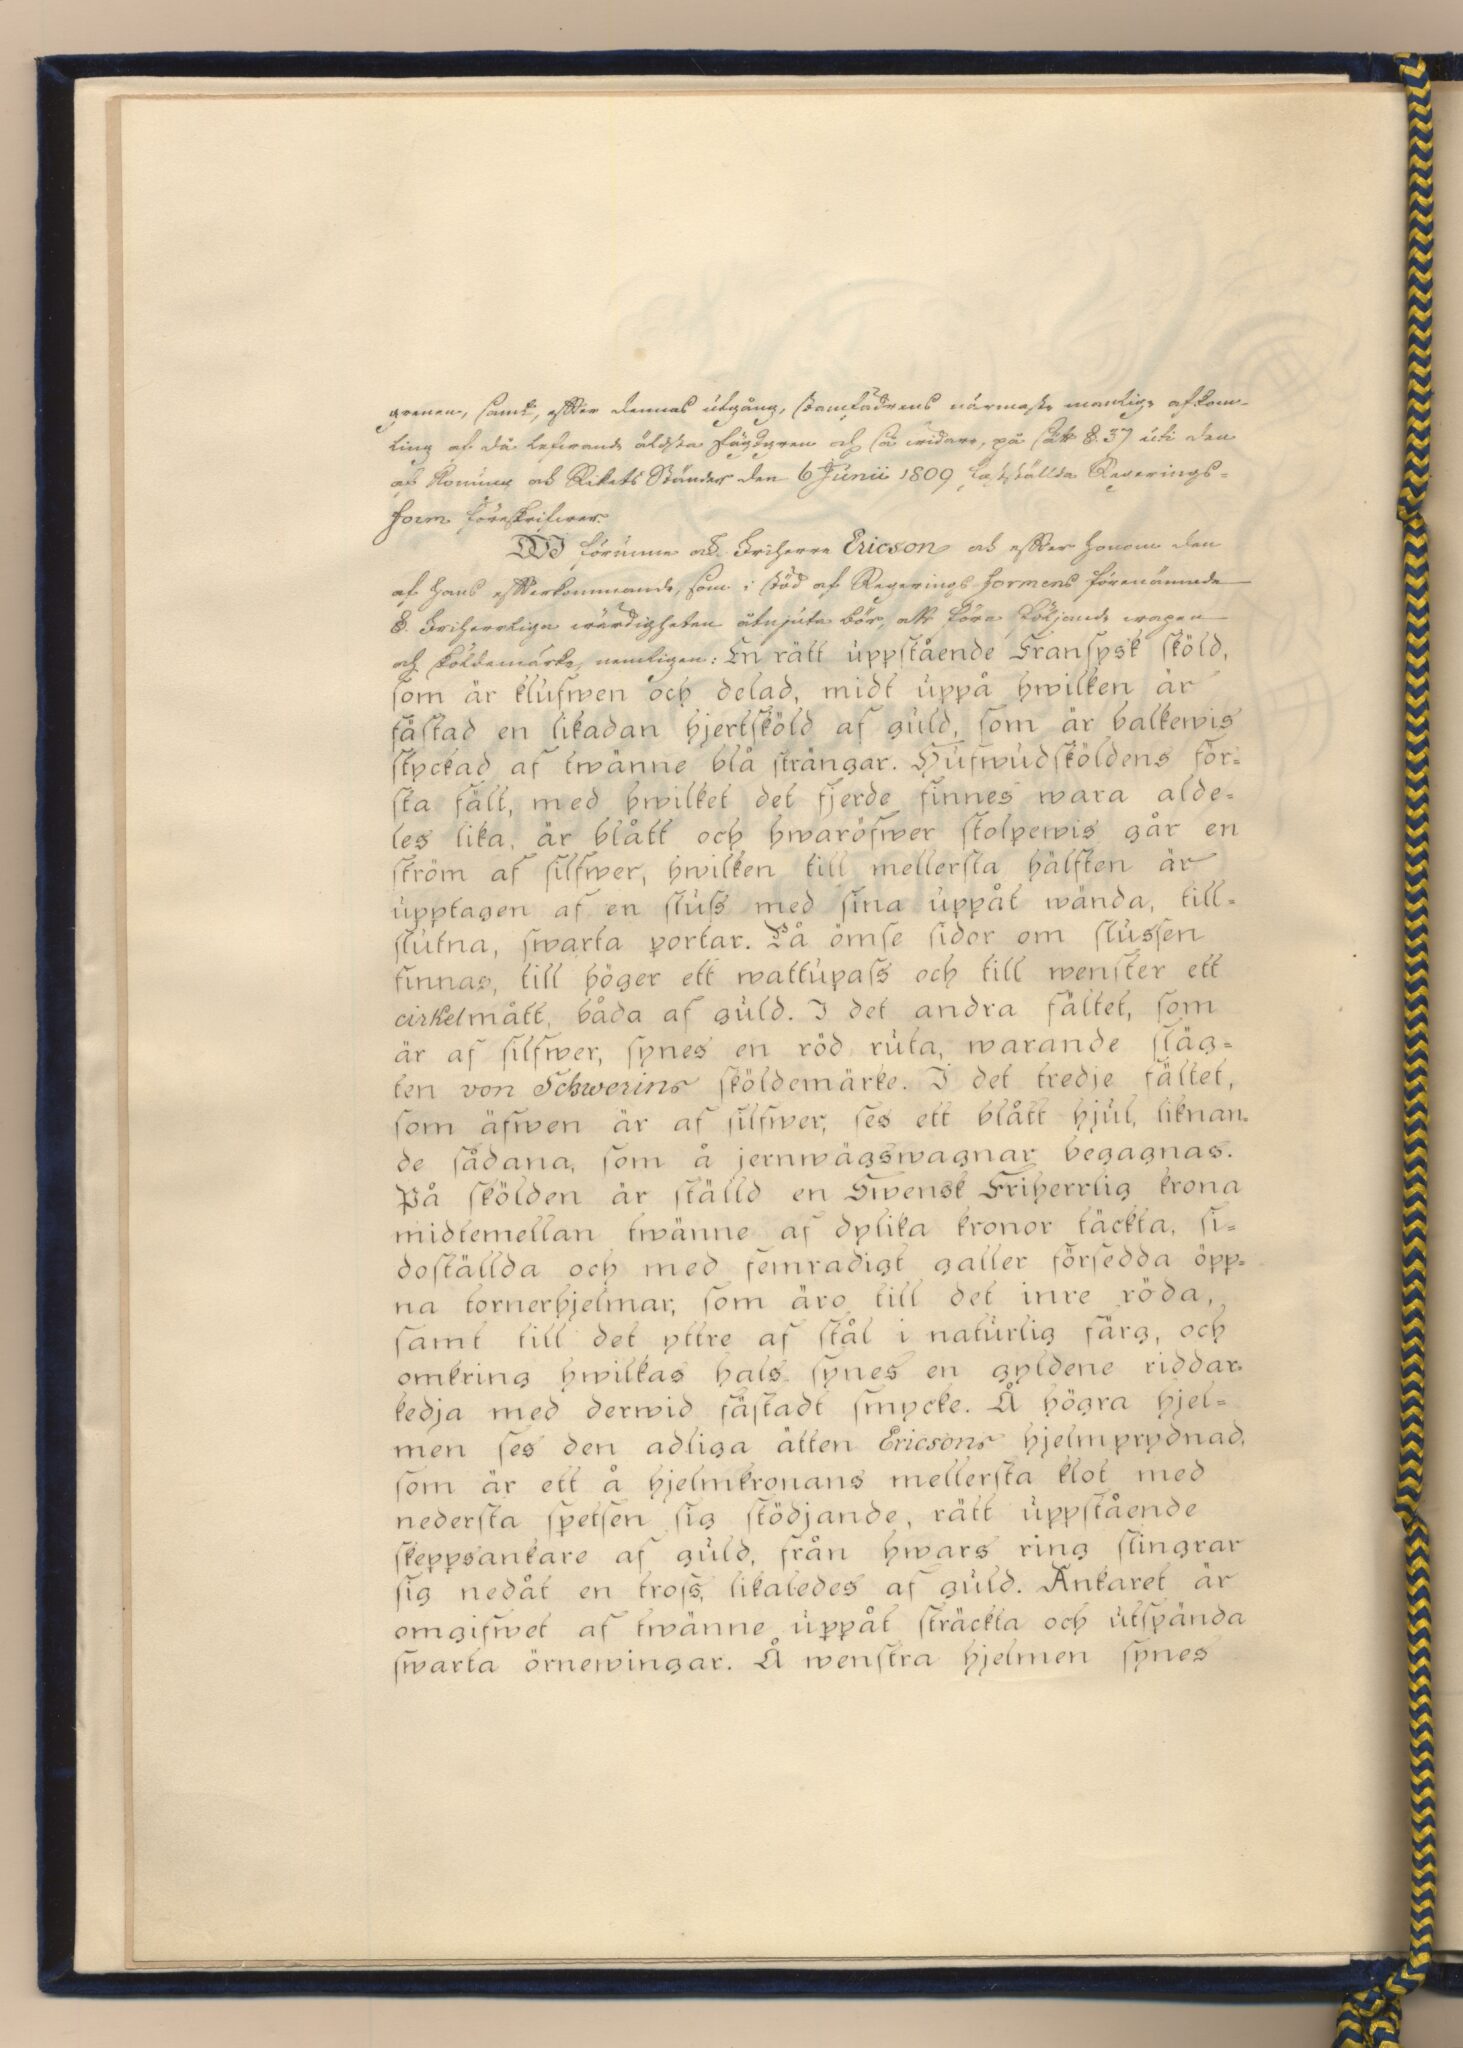 grenen, samt, efter dennas utgång, stamfadrens närmaste manlige afkom-
ling af då lefwande äldsta släggren och så widare, på sätt §. 37 uti den
af Konung och Rikets Ständer den 6 Junii 1809 fastställda Regerings-
form föreskrifwer.
WI förunne ock Friherre Ericson och efter honom den
af hans efterkommande, som i stöd af Regerings formens förenämnde
§. Friherrliga wärdigheten åtnjuta bör, att föra följande wapen
och sköldemärke, nemligen: En rätt uppstående Fransysk sköld,
som är klufwen och delad, midt uppå hwilken är
fästad en likadan hjertsköld af guld, som är balkewis
styckad af twänne blå strängar. Hufwudsköldens för-
sta fält, med hwilket det fjerde finnes wara alde-
les lika, är blått och hwaröfwer stolpewis går en
ström af silfwer, hwilken till mellersta hälften är
upptagen af en sluss med sina uppåt wända, till-
slutna, swarta portar. På ömse sidor om slussen
finnas, till höger ett wattupass och till wenster ett
cirkelmått, båda af guld. I det andra fältet, som
är af silfwer, synes en röd ruta, warande släg-
ten von Schwerins sköldemärke. I det tredje fältet,
som äfwen är af silfwer, ses ett blått hjul, liknan-
de sådana, som å jernwägswagnar begagnas.
På skölden är ställd en Swensk Friherrlig krona
midtemellan twänne af dylika kronor täckta, si-
doställda och med femradigt galler försedda öpp-
na tornerhjelmar, som äro till det inre röda,
samt till det yttre af stål i naturlig färg, och
omkring hwilkas hals synes en gyldene riddar-
kedja med derwid fästadt smycke. Å högra hjel-
men ses den adliga ätten Ericsons hjelmprydnad,
som är ett å hjelmkronans mellersta klot med
nedersta spetsen sig stödjande, rätt uppstående
skeppsankare af guld, från hwars ring slingrar
sig nedåt en tross, likaledes af guld. Ankaret är
omgifwet af twänne uppåt sträckta och utspända
swarta örnewingar. Å wenstra hjelmen synes